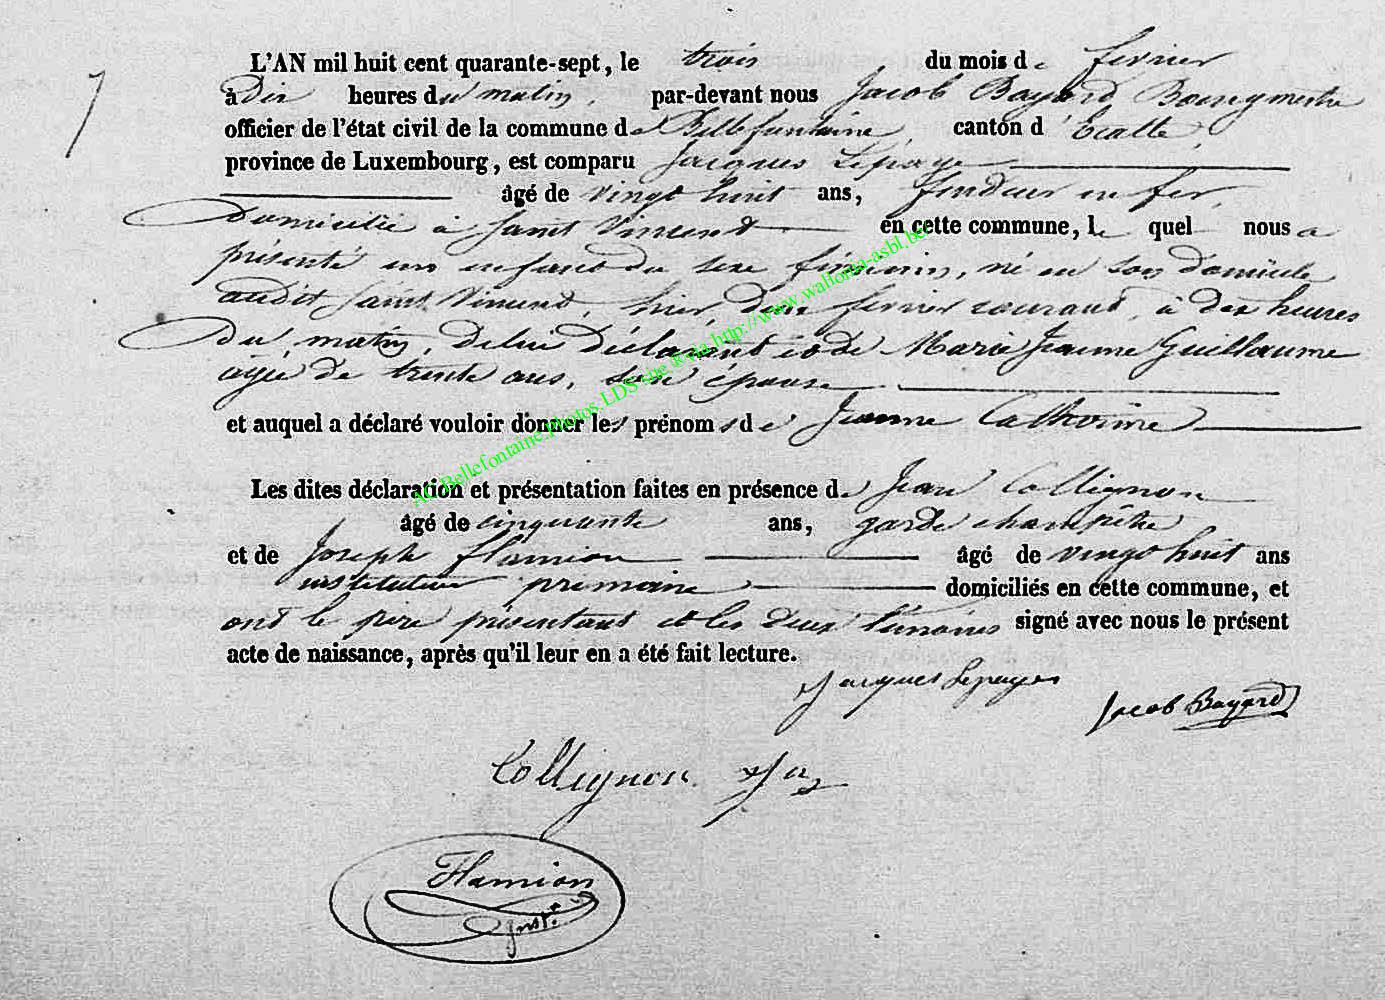 7
L'AN mil huit cent quarante-sept, le trois du mois de fevrier
à dix heures du matin, par-devant nous Jacob Bayard Bourgmestre
officier de l'état civil de la commune de Bellefontaine, canton d'Etalle,
province de Luxembourg, est comparu Jacques Lepage
âgé de vingt huit ans, fondeur en fer,
domicilié à Saint Vincent en cette commune, le quel nous a
présenté un enfant du sexe féminin, né en son domicile
audit Saint Vincent, hier, deux fevrier courant, à dix heures
du matin, de lui déclarant et de Marie Jeanne Guillaume
agée de trente ans, son épouse
et auquel a déclaré vouloir donner les prénoms de Jeanne Catherine
Les dites déclaration et présentation faites en présence de Jean Collignon
âgé de cinquante ans, garde champêtre
et de Joseph Hamion âgé de vingt huit ans
instituteur primaire domiciliés en cette commune, et
ont le père présentant et les deux témoins signé avec nous le présent
acte de naissance, après qu'il leur en a été fait lecture.
Jacques Lepage
Jacob Bayard
Collignon
Hamion
Inst.r
AC Bellefontaine.Photos.LDS site ®via http://www.wallonia-asbl.be/